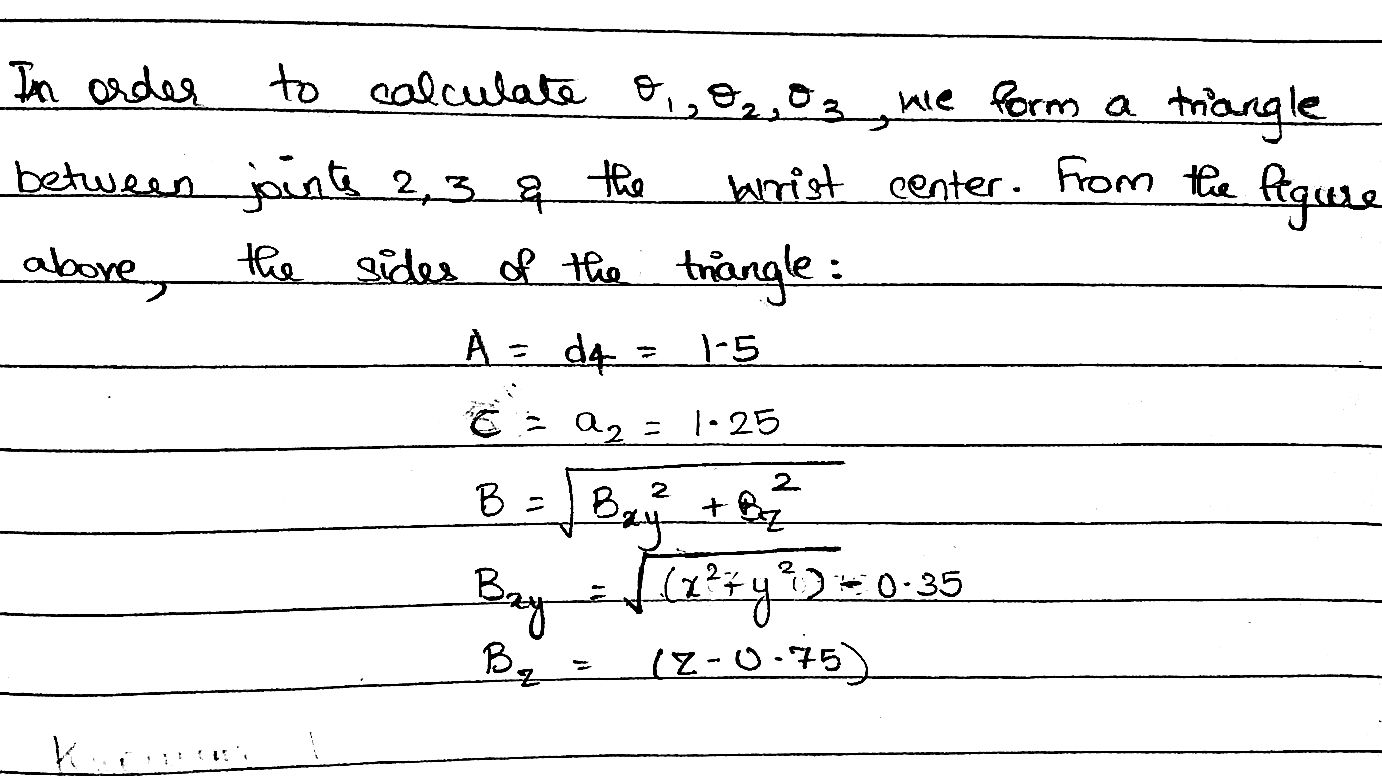 In order to calculate θ₁, θ₂, θ₃, we form a triangle
between joints 2, 3 & the wrist center. From the figure
above, the sides of the triangle:
A = d4 = 1.5
C = a₂ = 1.25
B = √(Bxy² + Bz²)
Bxy = √(x² + y²) - 0.35
Bz = (z - 0.75)